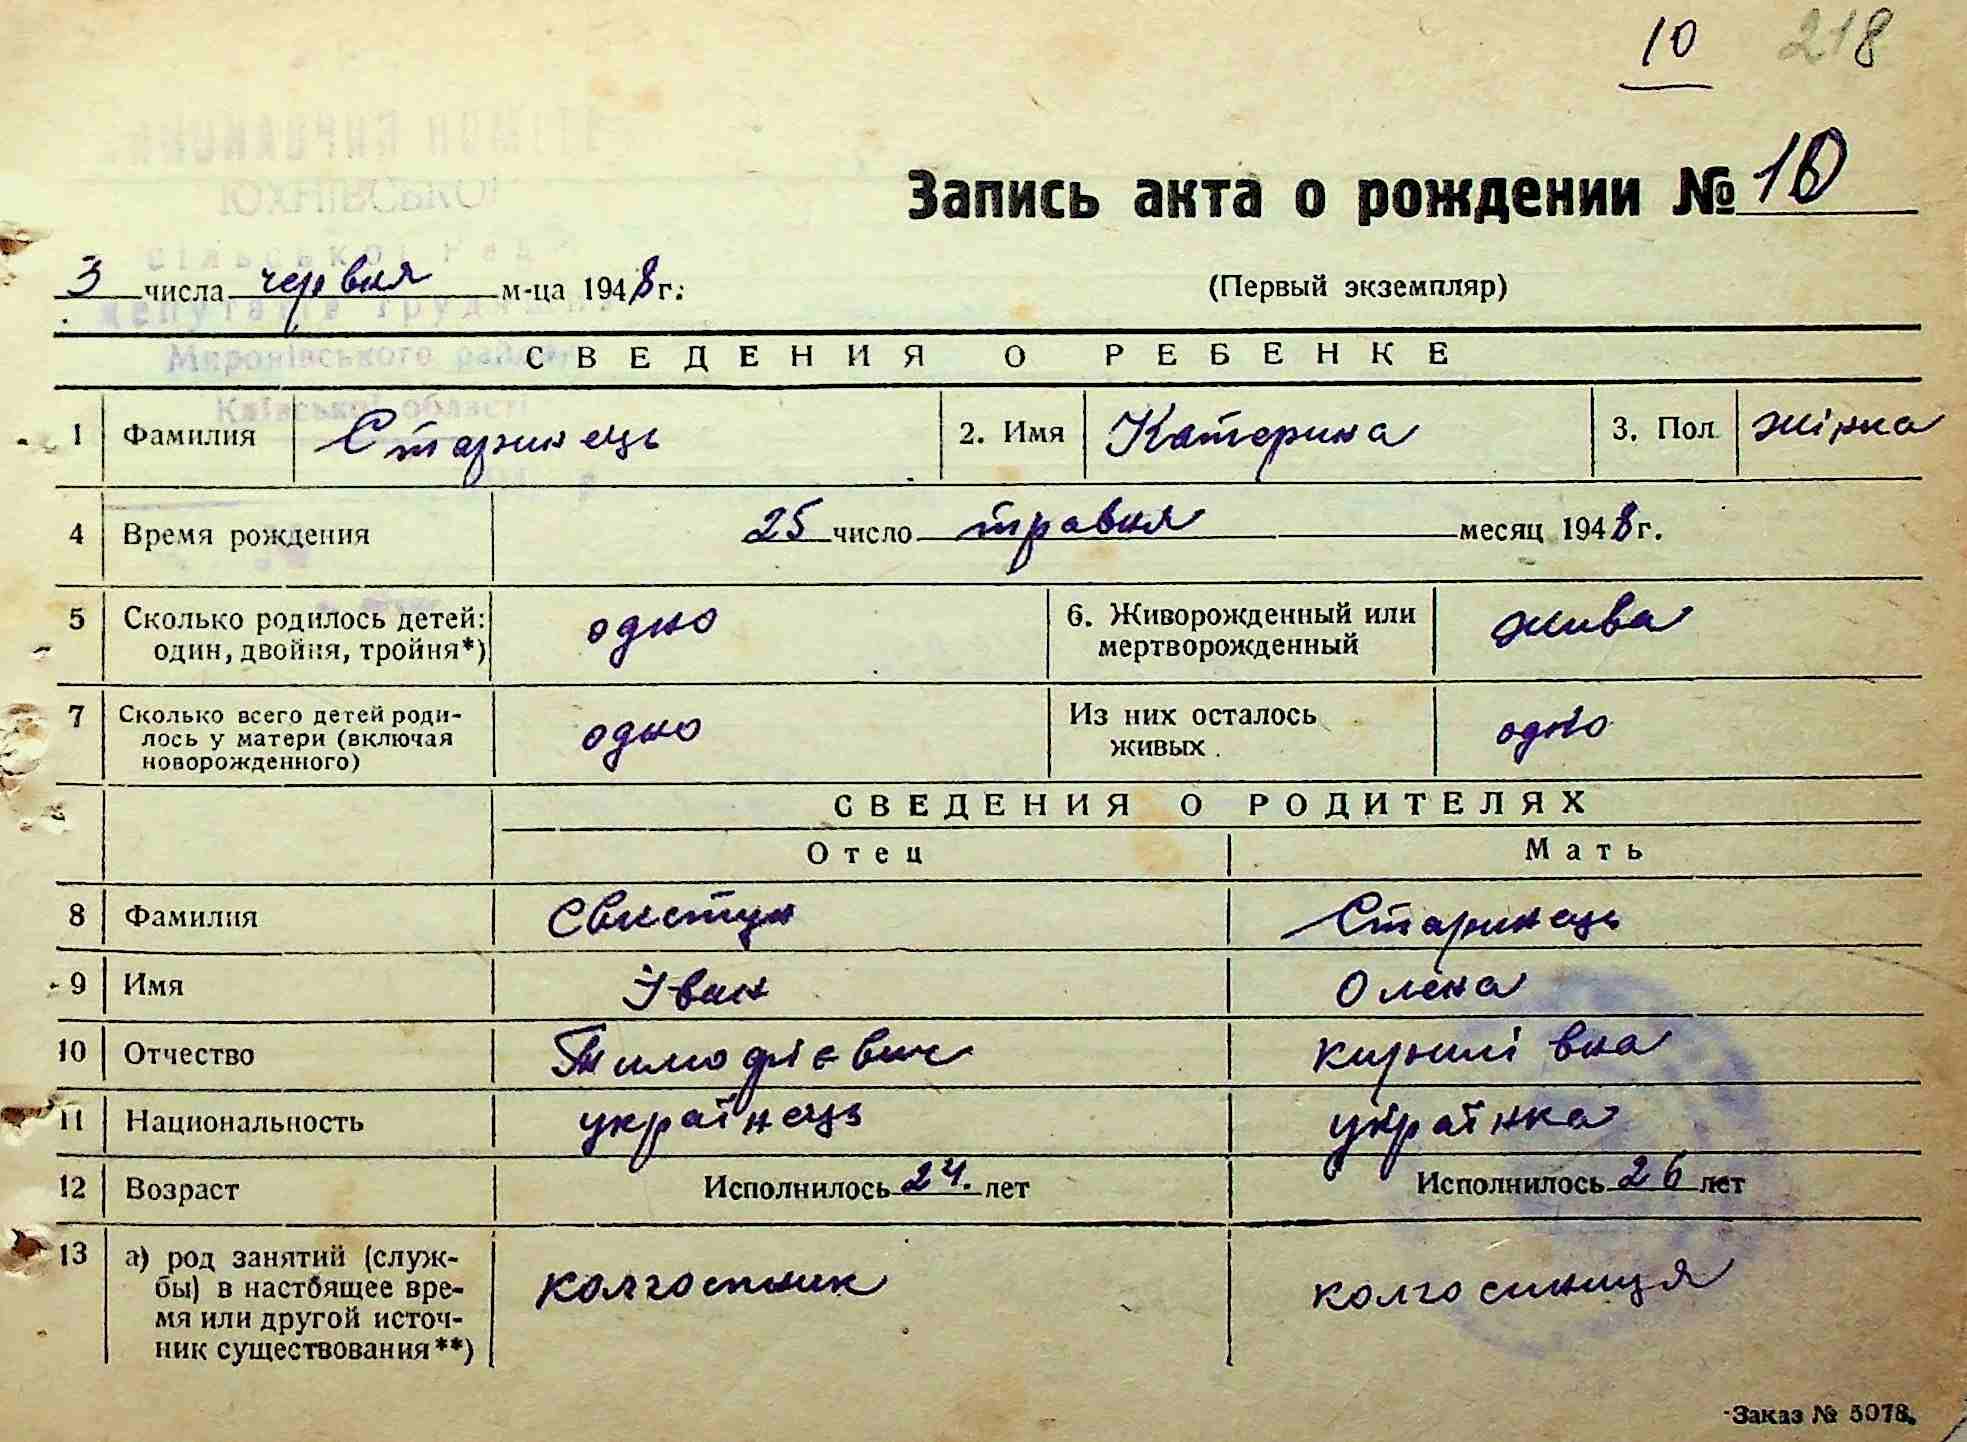 10 218
Запись акта о рождении № 10
3 числа червня м-ца 1948 г.
(Первый экземпляр)
СВЕДЕНИЯ О РЕБЕНКЕ
1 Фамилия Старинець 2. Имя Катерина 3. Пол жінка
4 Время рождения 25 число травня месяц 1948 г.
5 Сколько родилось детей: один, двойня, тройня*) одно 6. Живорожденный или мертворожденный жива
7 Сколько всего детей роди-
лось у матери (включая
новорожденного) одно Из них осталось живых одно
СВЕДЕНИЯ О РОДИТЕЛЯХ
Отец Мать
8 Фамилия Свистун Старинець
9 Имя Іван Олена
10 Отчество Тимофієвич Кирилівна
11 Национальность українець українка
12 Возраст Исполнилось 24. лет Исполнилось 26 лет
13 а) род занятий (служ-
бы) в настоящее вре-
мя или другой источ-
ник существования**) колгоспник колгоспниця
Заказ № 5078.
ЮХНІВСЬКОЇ
сільської
депутатів трудящих
Миронівського району
Київської області